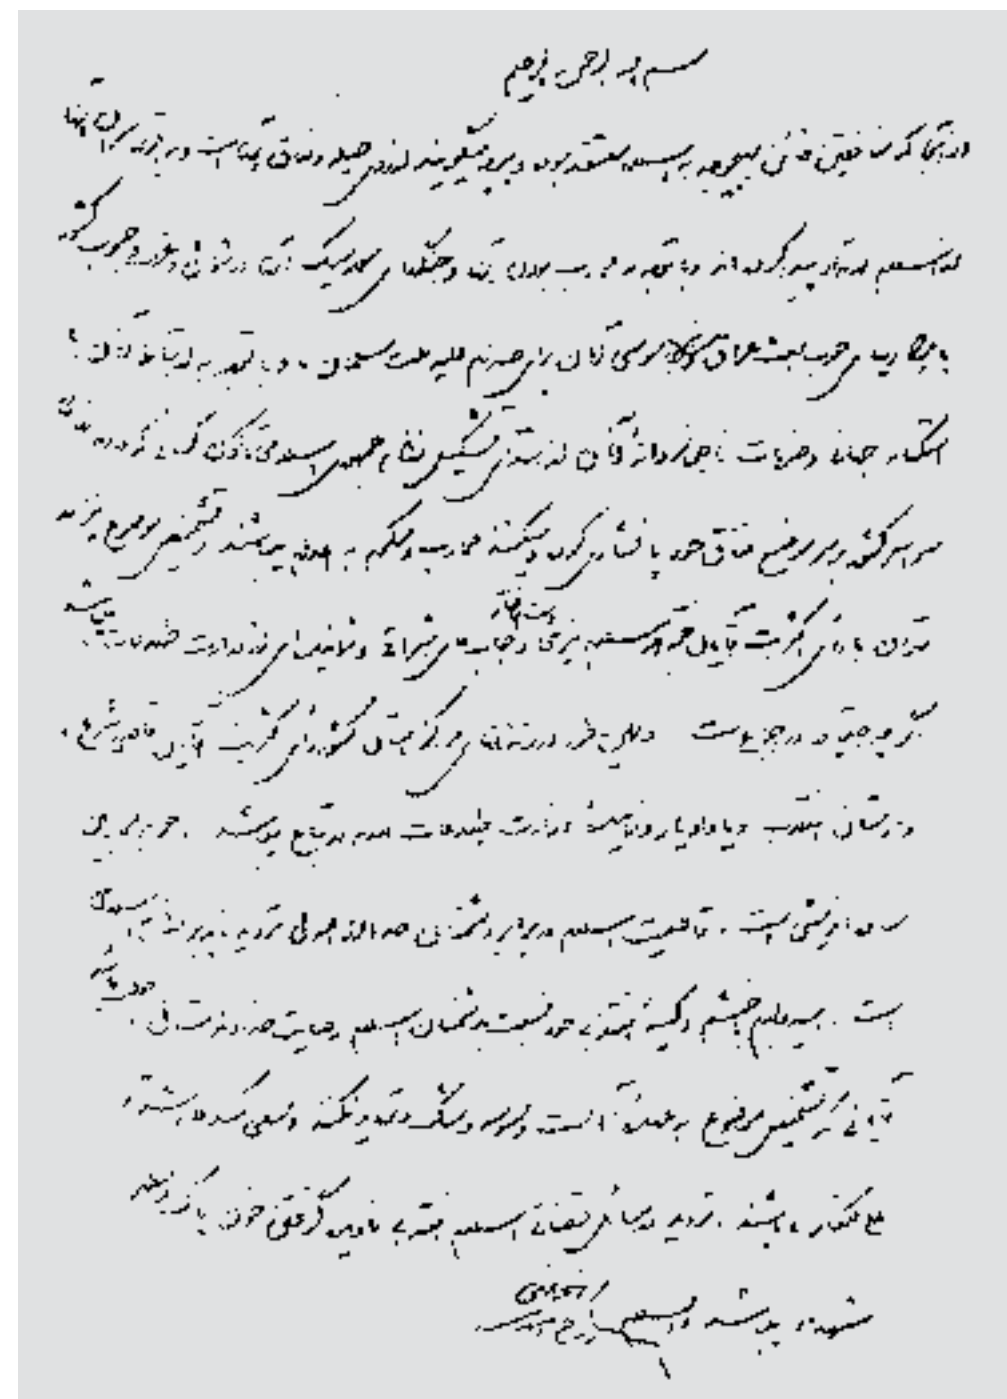 بسم الله الرحمن الرحیم
از آنجا که منافقین خائن بهیچوجه به اسلام معتقد نبوده و هر چه میگویند از روی حیله و نفاق آنهاست و به اقرار سران آنها
از اسلام ارتداد پیدا کرده‌اند و با توجه به محارب بودن آنها و جنگهای کلاسیک آنها در شمال و غرب و جنوب کشور
با همکاریهای حزب بعث عراق و نیز جاسوسی آنان برای صدام علیه ملت مسلمان ما و با توجه به ارتباط آنان با
استکبار جهانی و ضربات ناجوانمردانه آنان از ابتدای تشکیل نظام جمهوری اسلامی تاکنون کسانی که در زندانهای
سراسر کشور بر سر موضع نفاق خود پافشاری کرده و میکنند محارب و محکوم به اعدام میباشند و تشخیص موضوع نیز در
تهران با رأی اکثریت آقایان حجة الاسلام نیری دامت افاضاته و جناب آقای اشراقی و نماینده‌ای از وزارت اطلاعات میباشد
اگر چه احتیاط در اجماع است و همین طور در زندانهای مراکز استان کشور رأی اکثریت آقایان قاضی شرع،
دادستان انقلاب و یا دادیار و نماینده وزارت اطلاعات لازم الاتباع میباشد، رحم بر محاربین
ساده‌اندیشی است، قاطعیت اسلام در برابر دشمنان خدا از اصول تردید ناپذیر نظام اسلامی
است. امیدوارم با خشم و کینه انقلابی خود نسبت به دشمنان اسلام رضایت خداوند متعال را جلب نمائید
آقایانی که تشخیص موضوع به عهده آنان است وسوسه و شک و تردید نکنند و سعی کنند اشداء
علی الکفار باشند. تردید در مسائل قضائی اسلام انقلابی نادیده گرفتن خون پاک و مطهر
شهدا میباشد والسلام روح الله الموسوی الخمینی